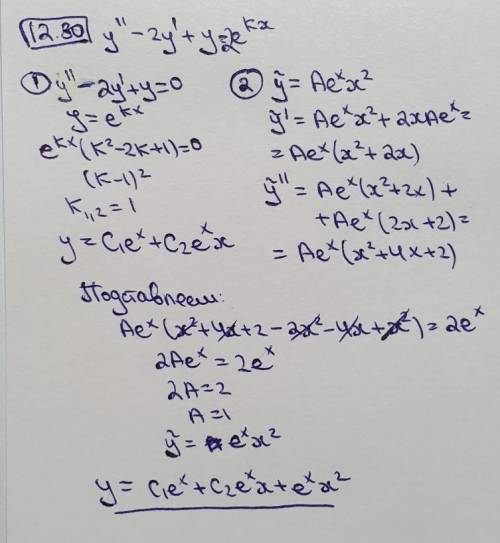 12.80 y'' - 2y' + y = 2e^{kx}
① y'' - 2y' + y = 0
y = e^{kx}
e^{kx}(k² - 2k + 1) = 0
(k - 1)²
k₁,₂ = 1
y = C₁eˣ + C₂eˣx
② ỹ = Aeˣx²
ỹ' = Aeˣx² + 2xAeˣ =
= Aeˣ(x² + 2x)
ỹ'' = Aeˣ(x² + 2x) +
+ Aeˣ(2x + 2) =
= Aeˣ(x² + 4x + 2)
Подставляем:
Aeˣ(x² + 4x + 2 - 2x² - 4x + x²) = 2eˣ
2Aeˣ = 2eˣ
2A = 2
A = 1
ỹ = eˣx²
y = C₁eˣ + C₂eˣx + eˣx²